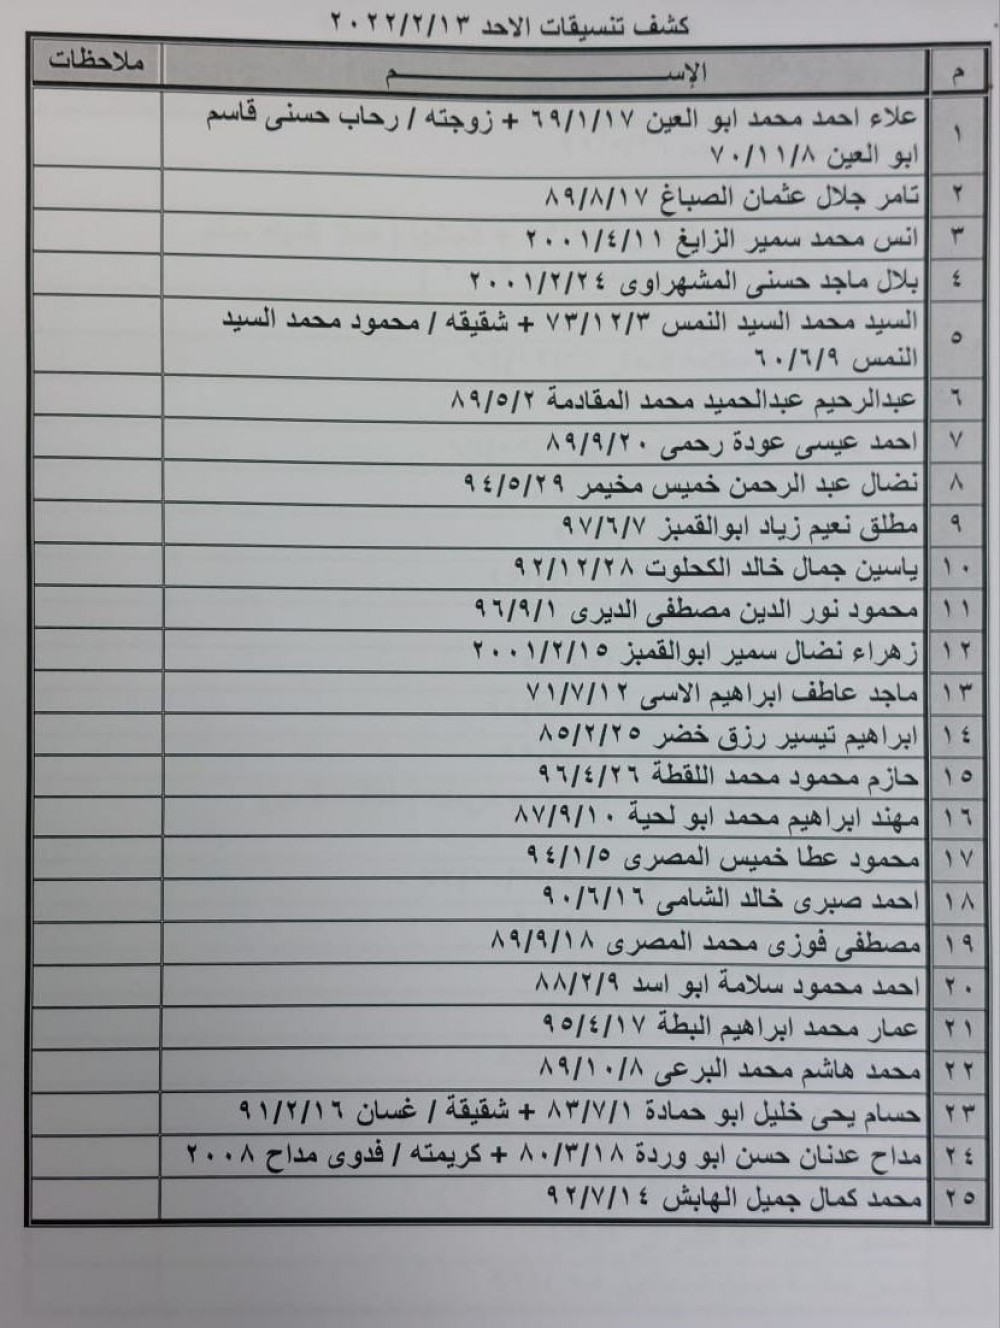 كشف تنسيقات الاحد ٢٠٢٢/٢/١٣
م الإســـــم ملاحظات
١ علاء احمد محمد ابو العين ٦٩/١/١٧ + زوجته / رحاب حسنى قاسم
ابو العين ٧٠/١١/٨
٢ تامر جلال عثمان الصباغ ٨٩/٨/١٧
٣ انس محمد سمير الزايغ ٢٠٠١/٤/١١
٤ بلال ماجد حسنى المشهراوى ٢٠٠١/٢/٢٤
٥ السيد محمد السيد النمس ٧٣/١٢/٣ + شقيقه / محمود محمد السيد
النمس ٦٠/٦/٩
٦ عبدالرحيم عبدالحميد محمد المقادمة ٨٩/٥/٢
٧ احمد عيسى عودة رحمى ٨٩/٩/٢٠
٨ نضال عبد الرحمن خميس مخيمر ٩٤/٥/٢٩
٩ مطلق نعيم زياد ابوالقمبز ٩٧/٦/٧
١٠ ياسين جمال خالد الكحلوت ٩٢/١٢/٢٨
١١ محمود نور الدين مصطفى الديرى ٩٦/٩/١
١٢ زهراء نضال سمير ابوالقمبز ٢٠٠١/٢/١٥
١٣ ماجد عاطف ابراهيم الاسى ٧١/٧/١٢
١٤ ابراهيم تيسير رزق خضر ٨٥/٢/٢٥
١٥ حازم محمود محمد اللقطة ٩٦/٤/٢٦
١٦ مهند ابراهيم محمد ابو لحية ٨٧/٩/١٠
١٧ محمود عطا خميس المصرى ٩٤/١/٥
١٨ احمد صبرى خالد الشامى ٩٠/٦/١٦
١٩ مصطفى فوزى محمد المصرى ٨٩/٩/١٨
٢٠ احمد محمود سلامة ابو اسد ٨٨/٢/٩
٢١ عمار محمد ابراهيم البطة ٩٥/٤/١٧
٢٢ محمد هاشم محمد البرعى ٨٩/١٠/٨
٢٣ حسام يحى خليل ابو حمادة ٨٣/٧/١ + شقيقة / غسان ٩١/٢/١٦
٢٤ مداح عدنان حسن ابو وردة ٨٠/٣/١٨ + كريمته / فدوى مداح ٢٠٠٨
٢٥ محمد كمال جميل الهابش ٩٢/٧/١٤